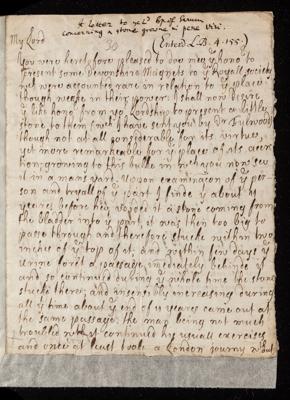 A letter to ye Ld Bp of Sarum
concerning a stone growne in pene viri.
(Entered L.B. 4. 155.)
My Lord
30
You were heretofore pleased to doe mee ye honor to
present some Devonshire Magnets to ye Royall society
wch were accounted rare in relation to ye place
though weake in their power: I shall now desire
ye like honor from yor Lordship to present another
stone to them (wch I have sent up by Dr Turwood)
though not at all considerable for its virtues,
yet more remarkeable for ye place of its accre-
tion growing to this bulke in wch you now see
it in a mans yard. Upon examination of ye per-
son and tryall of ye part I finde yt about 11
yeares before hee voyded it a stone coming from
the bladder into ye part it was then too big to
passe through and therefore stucke within two
inches of ye top of it, and within few dayes ye
urine forced a passage imediately behinde it
and so continued during ye whole time the stone
stucke there; and insensibly increasing during
all ye time about ye end of 11 yeares came out at
the same passage: the man being not much
troubled wth it continued his usuall exercises
and once at least tooke a London journey without